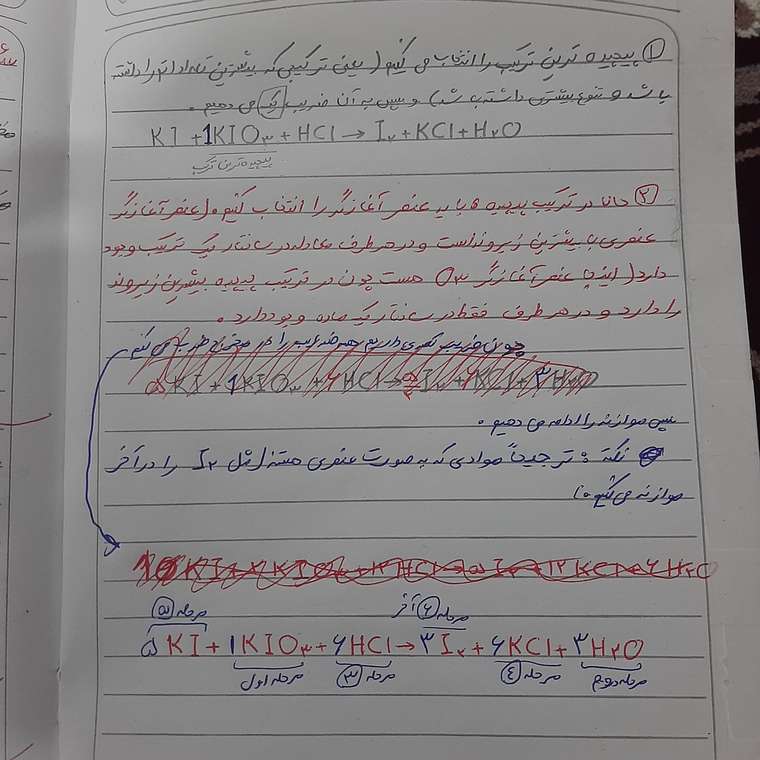 ① پیچیده ترین ترکیب را انتخاب می کنیم (یعنی ترکیبی که بیشترین تعداد اتم را داشته
باشد و تنوع بیشتری داشته باشد) و سپس به آن ضریب یک می دهیم.
KI + 1KIO۳ + HCl → I۲ + KCl + H۲O
پیچیده ترین ترکیب
② حالا در ترکیب پیچیده باید عنصر آغازگر را انتخاب کنیم. (عنصر آغازگر
عنصری با بیشترین زیروند است و در هر طرف معادله در ساختار یک ترکیب وجود
دارد) اینجا عنصر آغازگر O۳ هست چون در ترکیب پیچیده بیشترین زیروند
را دارد و در هر طرف فقط در ساختار یک ماده وجود دارد.
چون ضریب کسری داریم همه ضرایب را در مخرج ضرب می کنیم
سپس موازنه را ادامه می دهیم.
نکته: ترجیحاً موادی که به صورت عنصری هستند (مثل I۲ را در آخر
موازنه می کنیم.)
مرحله ⑤ مرحله ⑥ آخر
۵KI + 1KIO۳ + ۶HCl → ۳I۲ + ۶KCl + ۳H۲O
مرحله اول مرحله ③ مرحله ④ مرحله دوم